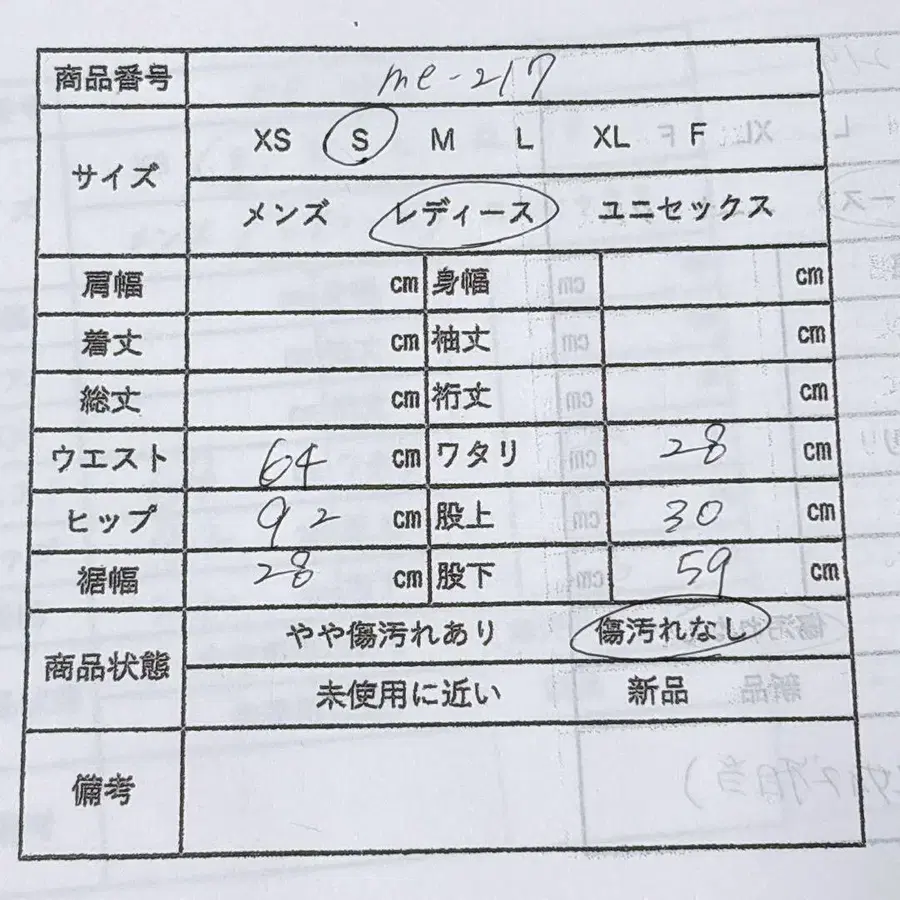 商品番号 me-217
サイズ XS S M L XL F
メンズ レディース ユニセックス
肩幅 cm 身幅 cm
着丈 cm 袖丈 cm
総丈 cm 裄丈 cm
ウエスト 64 cm ワタリ 28 cm
ヒップ 92 cm 股上 30 cm
裾幅 28 cm 股下 59 cm
商品状態 やや傷汚れあり 傷汚れなし
未使用に近い 新品
備考